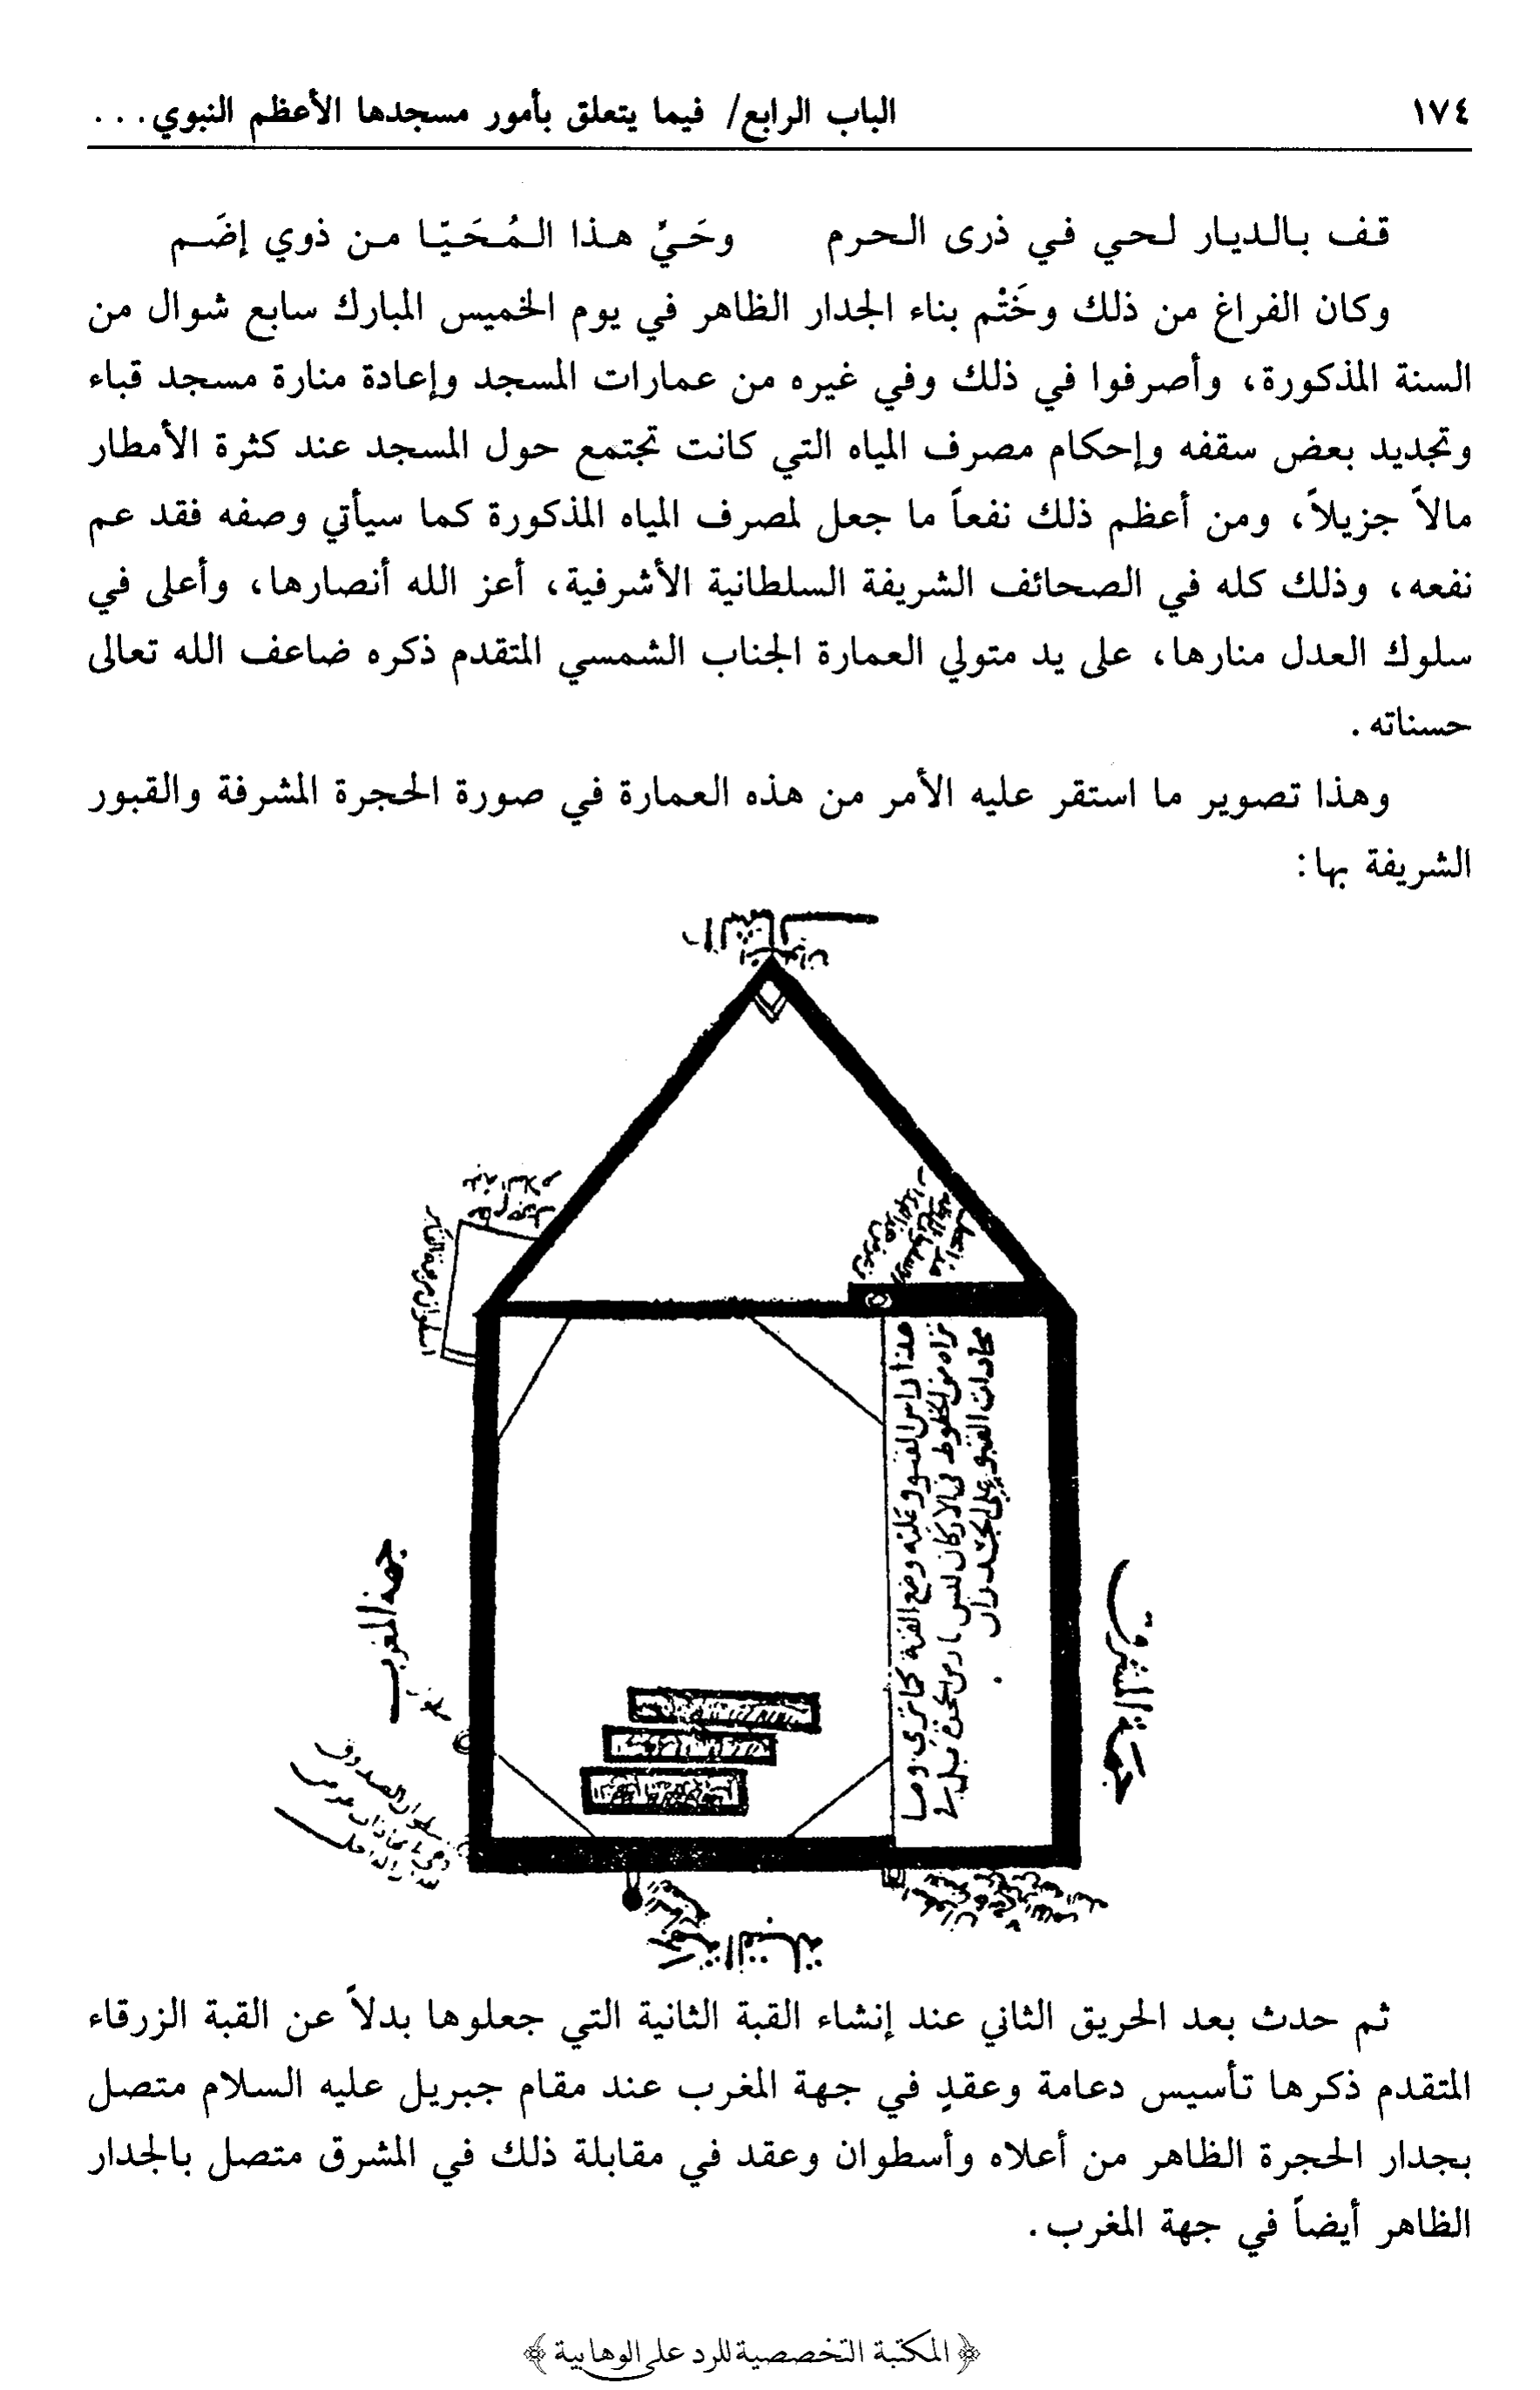 ١٧٤ الباب الرابع/ فيما يتعلق بأمور مسجدها الأعظم النبوي...
قف بالديار لحي في ذرى الحرم وحَيِّ هذا المُحَيّا من ذوي إضَم
وكان الفراغ من ذلك وخَتْم بناء الجدار الظاهر في يوم الخميس المبارك سابع شوال من
السنة المذكورة، وأصرفوا في ذلك وفي غيره من عمارات المسجد وإعادة منارة مسجد قباء
وتجديد بعض سقفه وإحكام مصرف المياه التي كانت تجتمع حول المسجد عند كثرة الأمطار
مالاً جزيلاً، ومن أعظم ذلك نفعاً ما جعل لمصرف المياه المذكورة كما سيأتي وصفه فقد عم
نفعه، وذلك كله في الصحائف الشريفة السلطانية الأشرفية، أعز الله أنصارها، وأعلى في
سلوك العدل منارها، على يد متولي العمارة الجناب الشمسي المتقدم ذكره ضاعف الله تعالى
حسناته.
وهذا تصوير ما استقر عليه الأمر من هذه العمارة في صورة الحجرة المشرفة والقبور
الشريفة بها:
اسطوان مربعة القبر
هذا راس القبو وعليه وضع القبة كما ترى وما
تراه من الخطوط في الاركان ليس
جهة المغرب
جهة المشرق
جهة القبلة
ثم حدث بعد الحريق الثاني عند إنشاء القبة الثانية التي جعلوها بدلاً عن القبة الزرقاء
المتقدم ذكرها تأسيس دعامة وعقدٍ في جهة المغرب عند مقام جبريل عليه السلام متصل
بجدار الحجرة الظاهر من أعلاه وأسطوان وعقد في مقابلة ذلك في المشرق متصل بالجدار
الظاهر أيضاً في جهة المغرب.
﴿المكتبة التخصصية للرد على الوهابية﴾